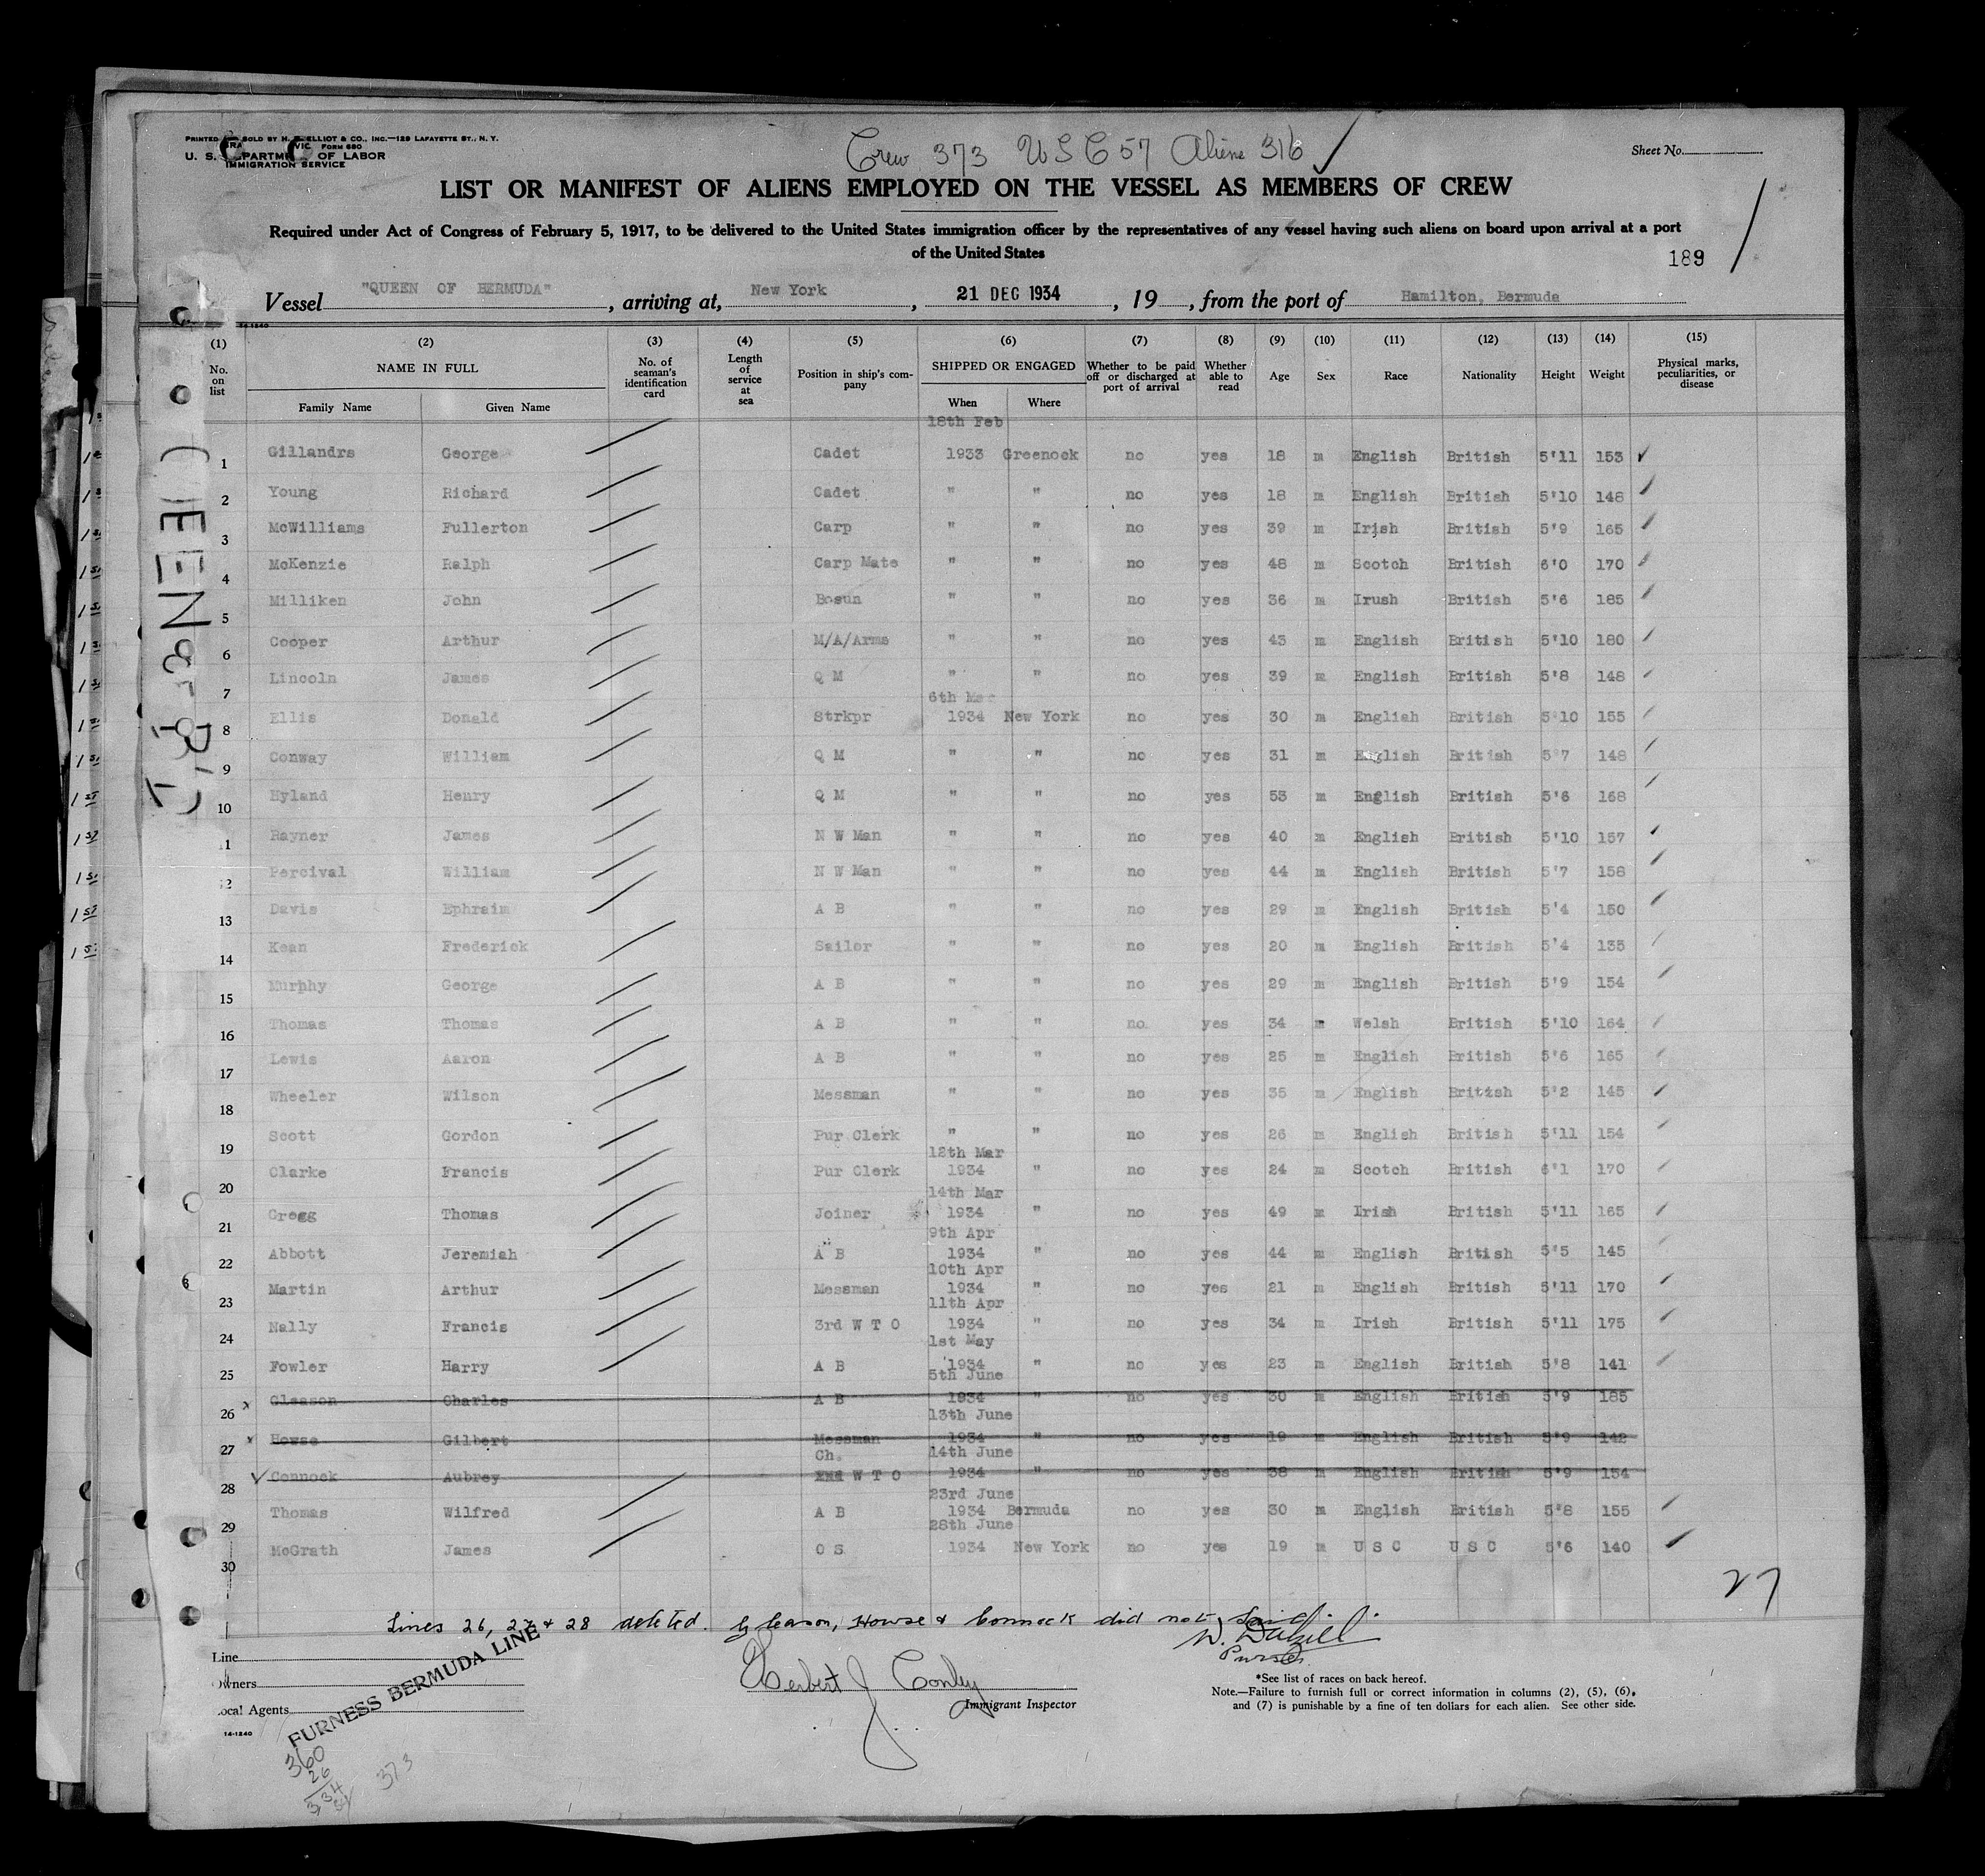 PRINTED SOLD BY H. ELLIOT & CO., INC.—129 LAFAYETTE ST., N. Y.
FORM 680
U. S. DEPARTMENT OF LABOR
IMMIGRATION SERVICE
Crew 373 USC 57 Aliens 316
Sheet No.
LIST OR MANIFEST OF ALIENS EMPLOYED ON THE VESSEL AS MEMBERS OF CREW
Required under Act of Congress of February 5, 1917, to be delivered to the United States immigration officer by the representatives of any vessel having such aliens on board upon arrival at a port
of the United States
189
Vessel "QUEEN OF BERMUDA", arriving at, New York, 21 DEC 1934, 19, from the port of Hamilton, Bermuda
14-1240
(1) (2) (3) (4) (5) (6) (7) (8) (9) (10) (11) (12) (13) (14) (15)
No. on list NAME IN FULL No. of seaman's identification card Length of service at sea Position in ship's company SHIPPED OR ENGAGED Whether to be paid off or discharged at port of arrival Whether able to read Age Sex Race Nationality Height Weight Physical marks, peculiarities, or disease
Family Name Given Name When Where
18th Feb
1 Gillandrs George Cadet 1933 Greenock no yes 18 m English British 5'11 153
2 Young Richard Cadet " " no yes 18 m English British 5'10 148
3 McWilliams Fullerton Carp " " no yes 39 m Irish British 5'9 165
4 McKenzie Ralph Carp Mate " " no yes 48 m Scotch British 6'0 170
5 Milliken John Bosun " " no yes 36 m Irush British 5'6 185
6 Cooper Arthur M/A/Arms " " no yes 43 m English British 5'10 180
7 Lincoln James Q M " " no yes 39 m English British 5'8 148
6th Mar
8 Ellis Donald Strkpr 1934 New York no yes 30 m English British 5'10 155
9 Conway William Q M " " no yes 31 m English British 5'7 148
10 Hyland Henry Q M " " no yes 53 m English British 5'6 168
11 Rayner James N W Man " " no yes 40 m English British 5'10 157
12 Percival William N W Man " " no yes 44 m English British 5'7 158
13 Davis Ephraim A B " " no yes 29 m English British 5'4 150
14 Kean Frederick Sailor " " no yes 20 m English British 5'4 135
15 Murphy George A B " " no yes 29 m English British 5'9 154
16 Thomas Thomas A B " " no yes 34 m Welsh British 5'10 164
17 Lewis Aaron A B " " no yes 25 m English British 5'6 165
18 Wheeler Wilson Messman " " no yes 35 m English British 5'2 145
19 Scott Gordon Pur Clerk " " no yes 26 m English British 5'11 154
12th Mar
20 Clarke Francis Pur Clerk 1934 " no yes 24 m Scotch British 6'1 170
14th Mar
21 Gregg Thomas Joiner 1934 " no yes 49 m Irish British 5'11 165
9th Apr
22 Abbott Jeremiah A B 1934 " no yes 44 m English British 5'5 145
10th Apr
23 Martin Arthur Messman 1934 " no yes 21 m English British 5'11 170
11th Apr
24 Nally Francis 3rd W T O 1934 " no yes 34 m Irish British 5'11 175
1st May
25 Fowler Harry A B 1934 " no yes 23 m English British 5'8 141
5th June
26 Gleason Charles A B 1934 " no yes 30 m English British 5'9 185
13th June
27 Howse Gilbert Messman 1934 " no yes 19 m English British 5'9 142
Ch. 14th June
28 Connock Aubrey W T O 1934 " no yes 38 m English British 5'9 154
23rd June
29 Thomas Wilfred A B 1934 Bermuda no yes 30 m English British 5'8 155
28th June
30 McGrath James O S 1934 New York no yes 19 m U S C U S C 5'6 140
27
Lines 26, 27 & 28 deleted. Gleason, Howse & Connock did not sail.
Purser
Line
Owners
Local Agents
FURNESS BERMUDA LINE
Herbert J. Conley
Immigrant Inspector
*See list of races on back hereof.
Note.—Failure to furnish full or correct information in columns (2), (5), (6),
and (7) is punishable by a fine of ten dollars for each alien. See other side.
14-1240
360
26
334
373